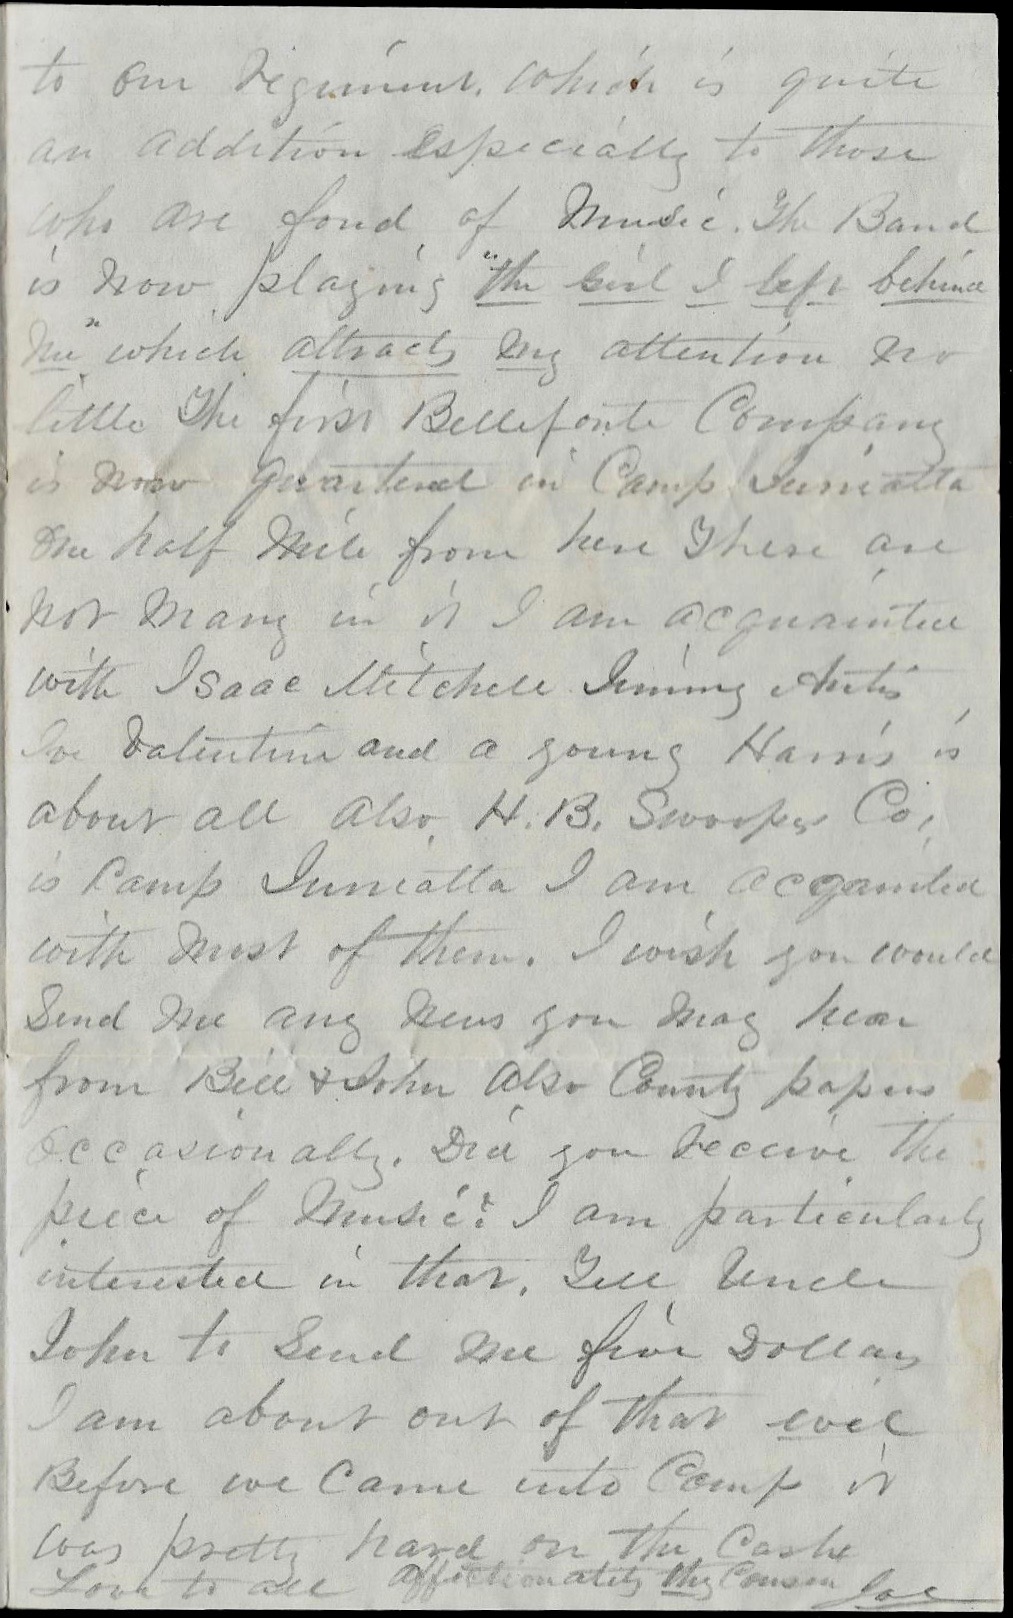 to our regiment. which is quite
an addition Especially to those
who are fond of Music. The Band
is now playing "the Girl I left behind
Me" which attracts my attention no
little The first Bellefonte Company
is now Quartered in Camp Juniatta
One half Mile from here There are
not Many in it I am acquainted
with Isaac Mitchell Jimmy Antis
Joe Valentine and a young Harris is
about all also H. B. Swoopes Co.
is Camp Juniatta I am acqanited
with Most of them. I wish you would
Send Me any News you May hear
from Bill & John Also County papers
Occasionally. Did you receive the
piece of Music? I am particularly
interested in that. Tell Uncle
John to Send Me five Dollars
I am about out of that evil
Before we Came into Camp it
was pretty hard on the Cashe
Love to all Affectionately thy Cousin Joe